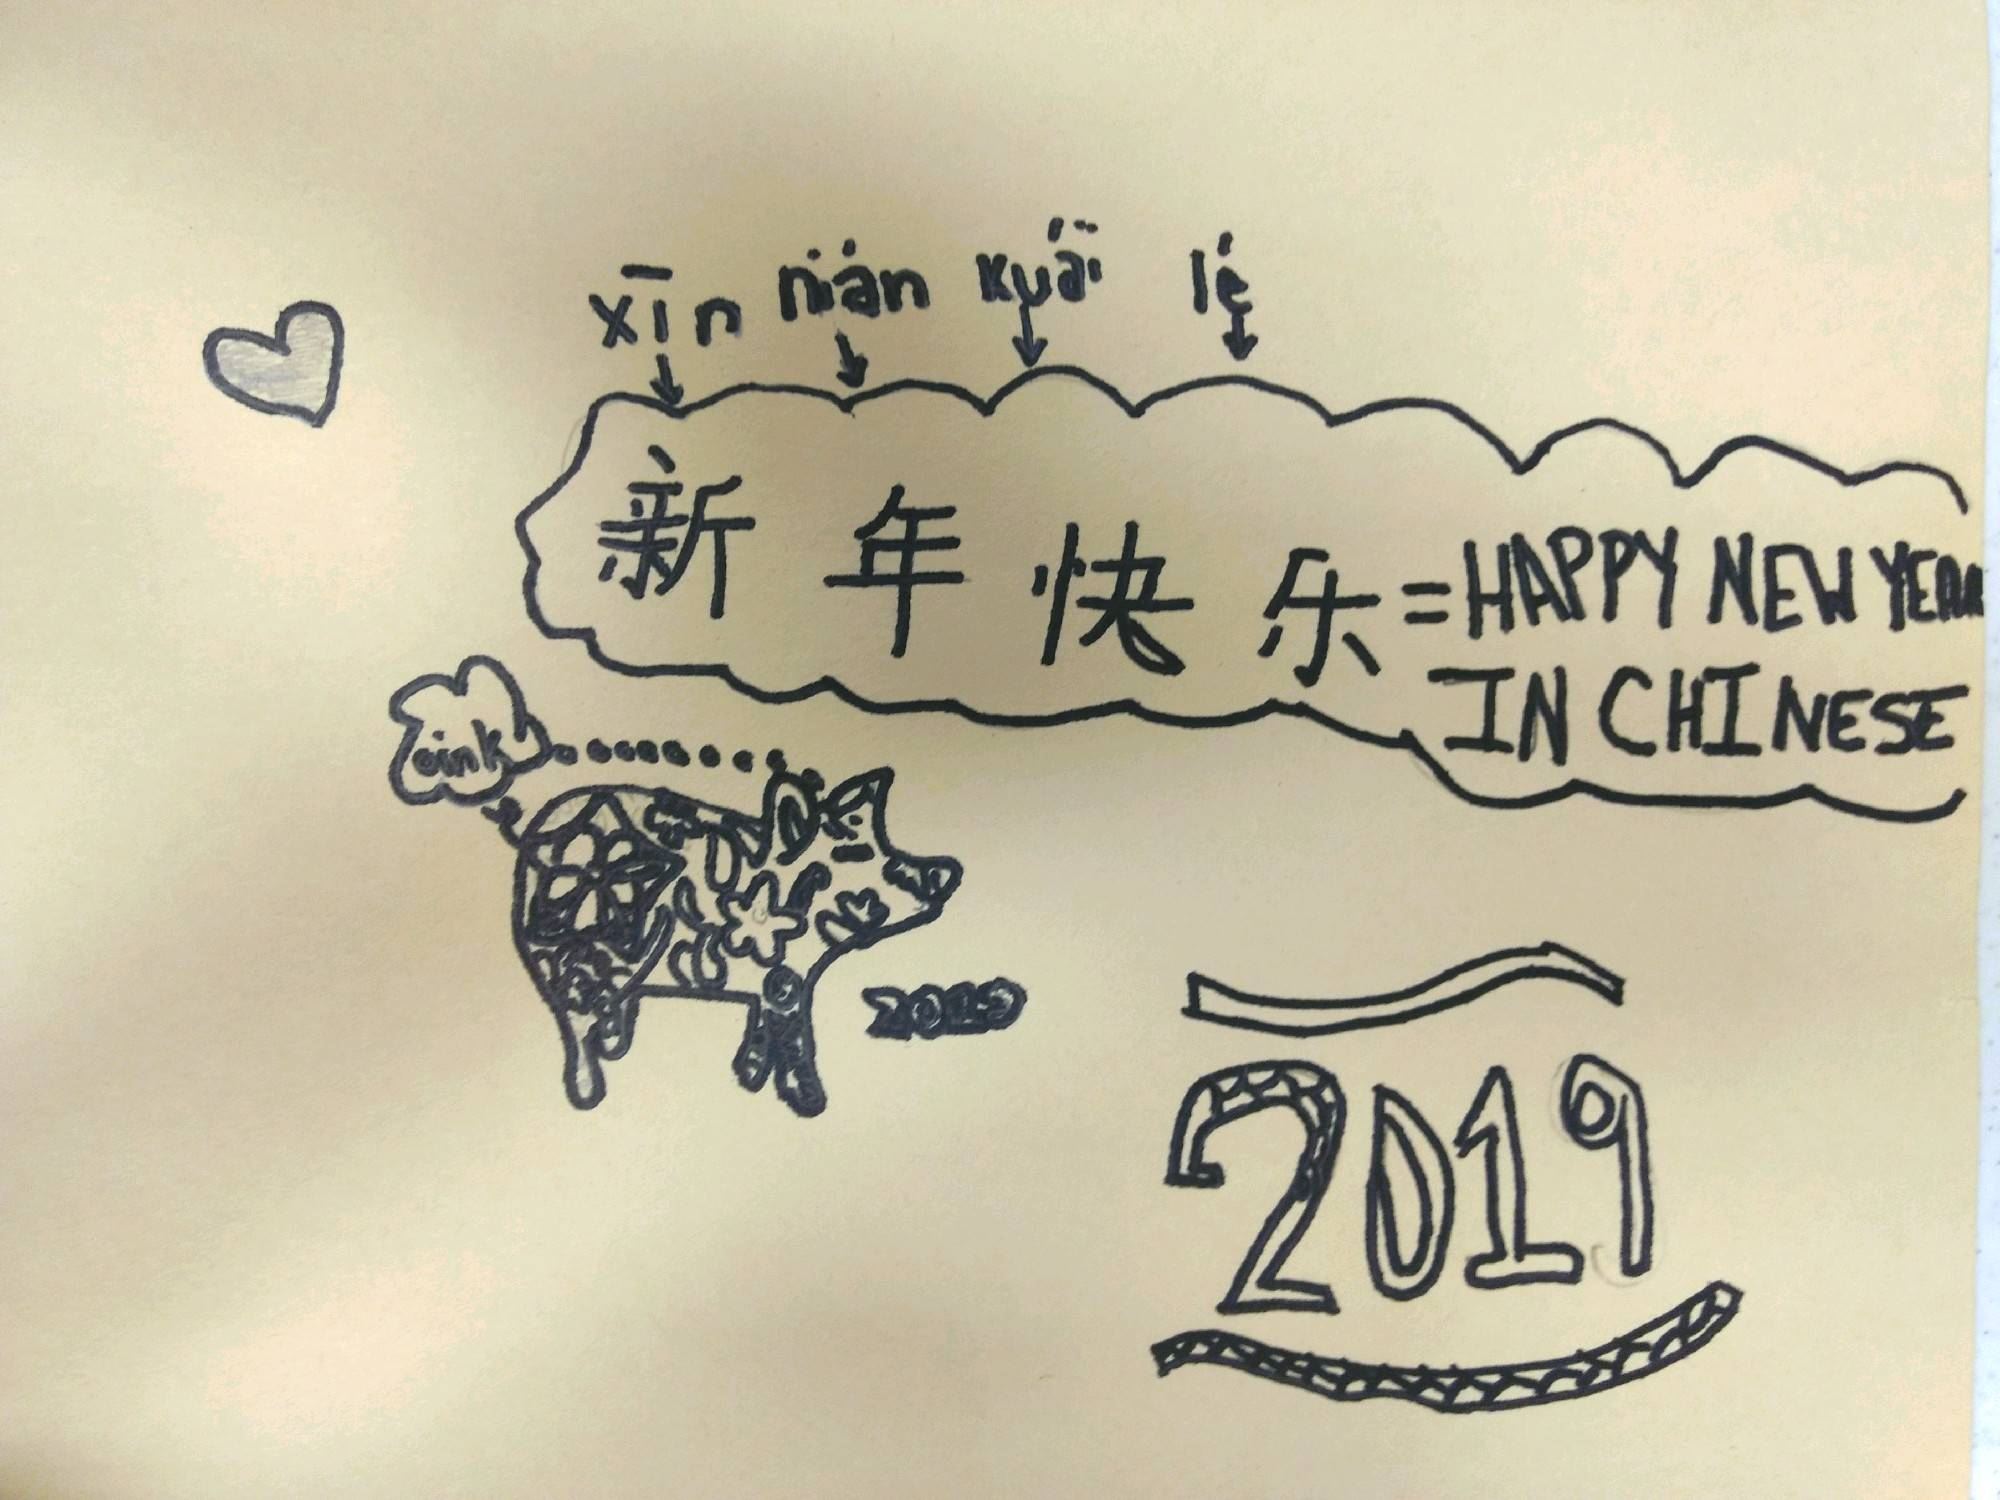 xīn nián kuài lé
新年快乐=HAPPY NEW YEAR
IN CHINESE
oink
2019
2019